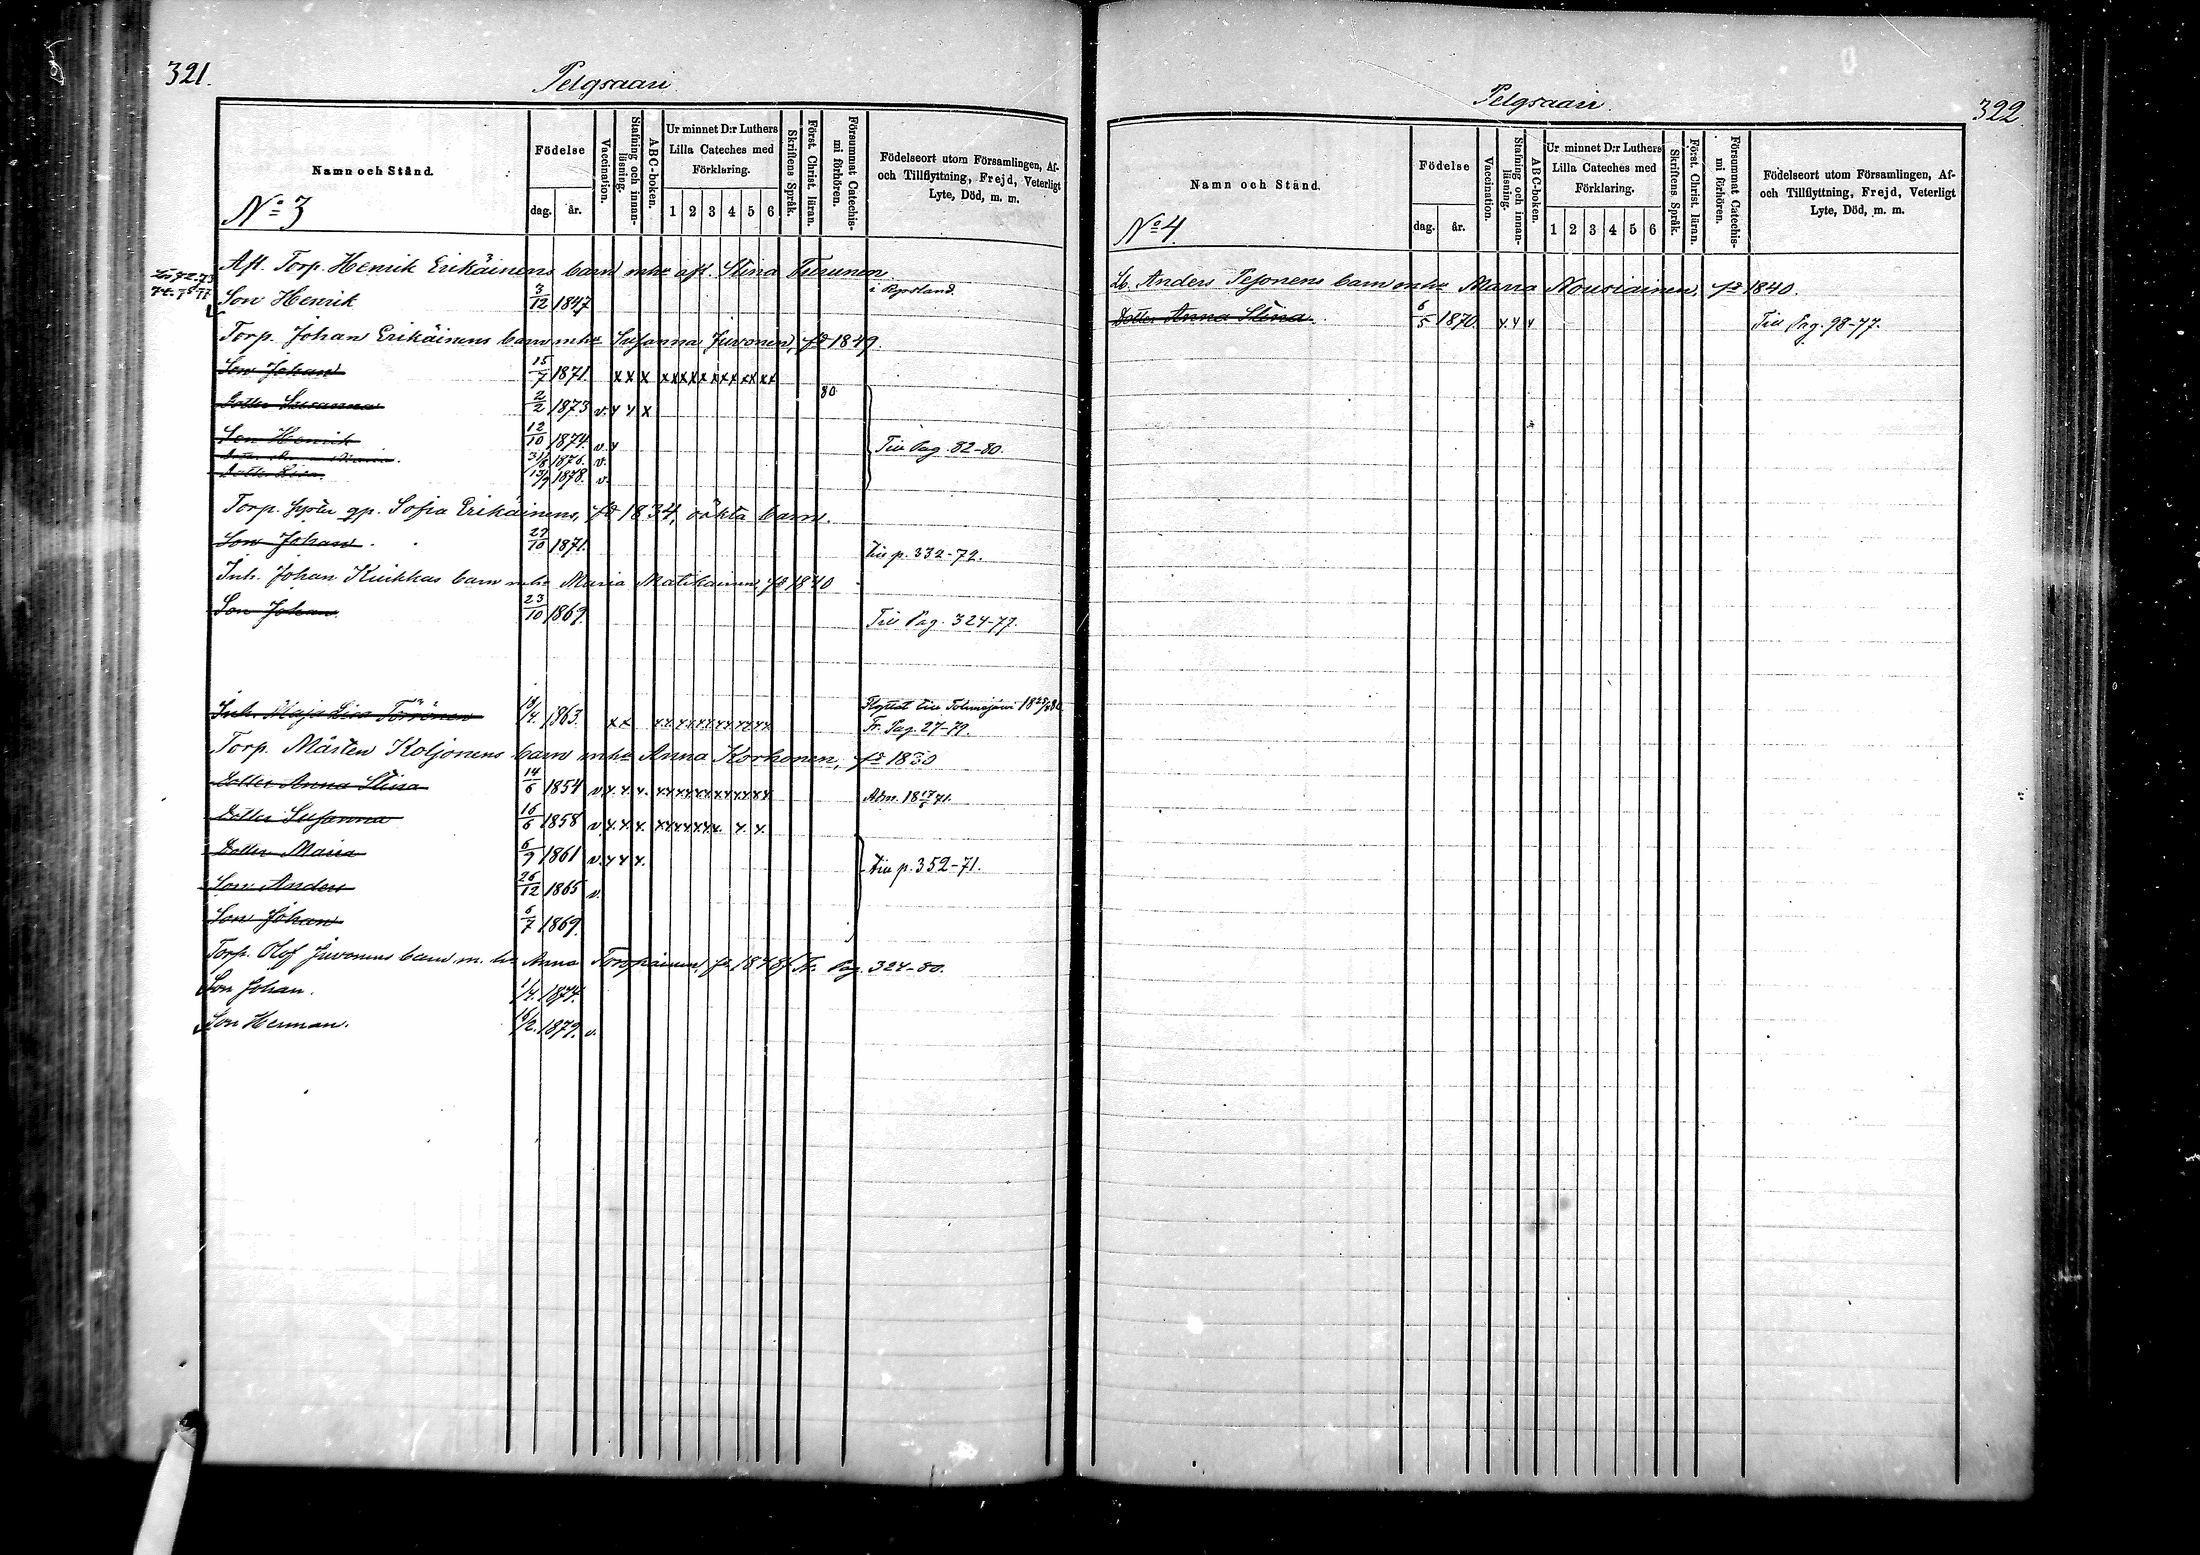 321.
Pelgsaari.
Namn och Stånd.
Födelse
dag. år.
Vaccination.
Stafning och innanläsning.
ABC-boken.
Ur minnet D:r Luthers Lilla Cateches med Förklaring.
1 2 3 4 5 6
Skriftens Språk.
Först. Christ. läran.
Försummat Catechismi förhören.
Födelseort utom Församlingen, Af-
och Tillflyttning, Frejd, Veterligt
Lyte, Död, m. m.
No 3
Afl. Torp. Henrik Erikäinens barn mhu afl. Stina Turunen.
Son Henrik 3/12 1847 i Ryssland.
Torp. Johan Erikäinens barn mhu Susanna Juvonen, fd 1849.
Son Johan 15/7 1871. x x x xx xx x x xx xx xx
80
Dotter Susanna 2/2 1873 v. x x x
Son Henrik 12/10 1874. v. x Till Pag. 82-80.
31/8 1876. v.
Dotter Lisa 13/9 1878. v.
Torp. gp. Sofia Erikäinens, fd 1834, oäkta barn.
Son Johan 29/10 1871. till p. 332-72.
Inh. Johan Kuikkas barn mhu Maria Matikainen, fd 1840
Son Johan 23/10 1869. Till Pag. 324-77.
Inh. Maja Lisa Törrönen 18/4. 1863. x x xx xx xx xx xx xx Flyttat till Tohmajärvi
Fr. Pag. 27-79.
Torp. Mårten Koljonens barn mhu Anna Korhonen, fd 1830
Dotter Anna Stina 14/6 1854 v. x. x x. xx xx xx xx xx xx Adm. 18 17/6 71.
Dotter Susanna 16/6 1858 v. x. x. x. xx xx xx x. x. x.
Dotter Maria 6/9 1861 v. x x x. till p. 352-71.
Son Anders 26/12 1865 v.
Son Johan 6/7 1869.
Torp. Olof Juvonens barn m. hu Anna Toropainen, fd 1848 fr. Pag. 324-80.
Son Johan. 1/4. 1874.
Son Herman. 16/2. 1879. v.
322.
Pelgsaari.
Namn och Stånd.
Födelse
dag. år.
Vaccination.
Stafning och innanläsning.
ABC-boken.
Ur minnet D:r Luthers Lilla Cateches med Förklaring.
1 2 3 4 5 6
Skriftens Språk.
Först. Christ. läran.
Försummat Catechismi förhören.
Födelseort utom Församlingen, Af-
och Tillflyttning, Frejd, Veterligt
Lyte, Död, m. m.
No 4.
Lb. Anders Pesonens barn mhu Maria Nousiainen, fd 1840.
Dotter Anna Stina. 6/5 1870. x x x Till Pag. 98-77.